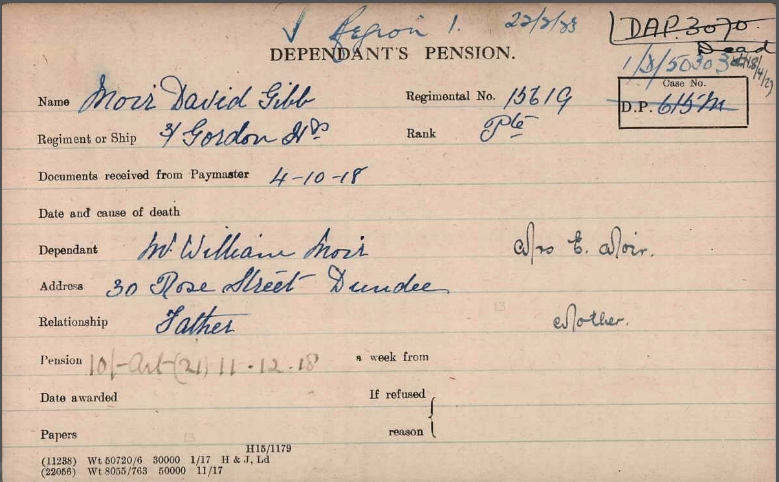 ✓ Region 1. 22/2/23 DAP. 3070.
Dead
DEPENDANT'S PENSION. 1/D/50303
Case No.
Name Moir David Gibb Regimental No. 15619 D.P. 615M
Regiment or Ship 3/ Gordon Hdrs Rank Pte
Documents received from Paymaster 4-10-18
Date and cause of death
Dependant Mr William Moir Mrs E. Moir.
Address 30 Rose Street Dundee
Relationship Father Mother.
Pension 10/- Art (21) 11.12.18 a week from
Date awarded If refused
Papers reason
H15/1179
(11238) Wt 50720/6 30000 1/17 H & J, Ld
(22056) Wt 8055/763 50000 11/17